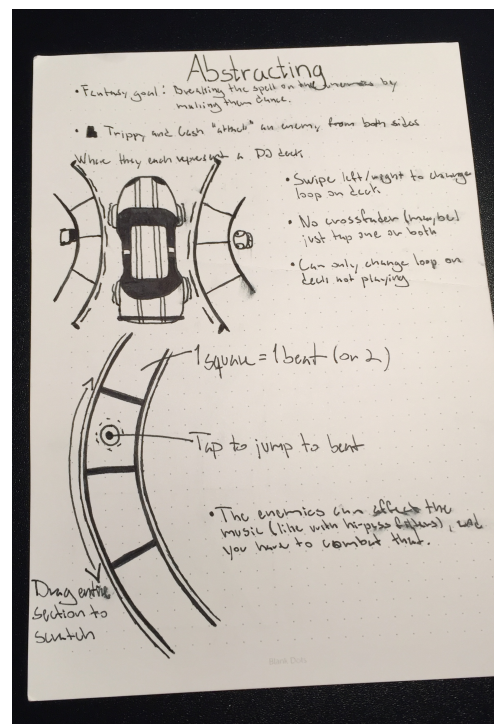 Abstracting
• Fantasy goal: Breaking the spell on the enemies by
making them dance.
• Trippy and Cash "attack" an enemy from both sides
Where they each represent a DJ deck
• Swipe left/right to change
loop on deck
• No crossfader (maybe)
just tap one or both
• Can only change loop on
deck not playing
1 square = 1 beat (or 2)
Tap to jump to beat
• The enemies can affect the
music (like with hi-pass filters), and
you have to combat that.
Drag entire
section to
scratch